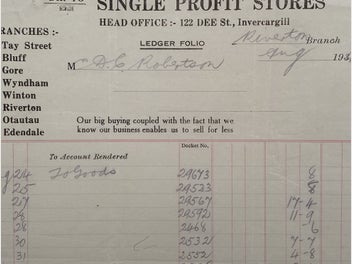 SINGLE PROFIT STORES
HEAD OFFICE :- 122 DEE St., Invercargill
BRANCHES :-
Tay Street
Bluff
Gore
Wyndham
Winton
Riverton
Otautau
Edendale
LEDGER FOLIO
Riverton Branch
Aug 193
M Robertson
Our big buying coupled with the fact that we
know our business enables us to sell for less
Docket No.
To Account Rendered
Aug 24 To Goods 29673 8
25 29533 8
27 29567 17-4
28 29592 11-9
28 2468 -6
30 2532 7-7
31 2552 4-8